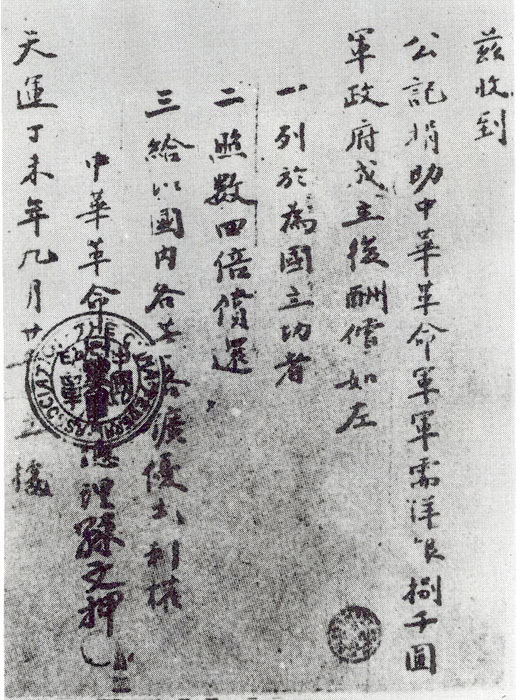 茲收到
公記捐助中華革命軍軍需洋艮捌千圓
軍政府成立後酬償如左
一列於為國立功者
二照數四倍償還
三給以國內各路礦優先利權
中華革命總理孫文押
天運丁未年九月廿立據
THE CHINA FEDERAL ASSOCIATION